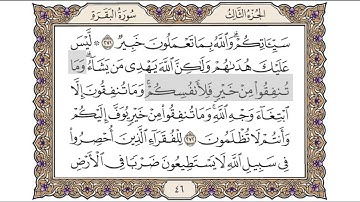 سُورَةُ البَقَرَةِ
الجُزْءُ الثَّالِثُ
سَيِّـَٔاتِكُمْ ۗ وَٱللَّهُ بِمَا تَعْمَلُونَ خَبِيرٌ ﴿٢٧١﴾ ۞ لَّيْسَ
عَلَيْكَ هُدَىٰهُمْ وَلَٰكِنَّ ٱللَّهَ يَهْدِى مَن يَشَآءُ ۗ وَمَا
تُنفِقُوا۟ مِنْ خَيْرٍ فَلِأَنفُسِكُمْ ۚ وَمَا تُنفِقُونَ إِلَّا
ٱبْتِغَآءَ وَجْهِ ٱللَّهِ ۚ وَمَا تُنفِقُوا۟ مِنْ خَيْرٍ يُوَفَّ إِلَيْكُمْ
وَأَنتُمْ لَا تُظْلَمُونَ ﴿٢٧٢﴾ لِلْفُقَرَآءِ ٱلَّذِينَ أُحْصِرُوا۟
فِى سَبِيلِ ٱللَّهِ لَا يَسْتَطِيعُونَ ضَرْبًا فِى ٱلْأَرْضِ
٤٦